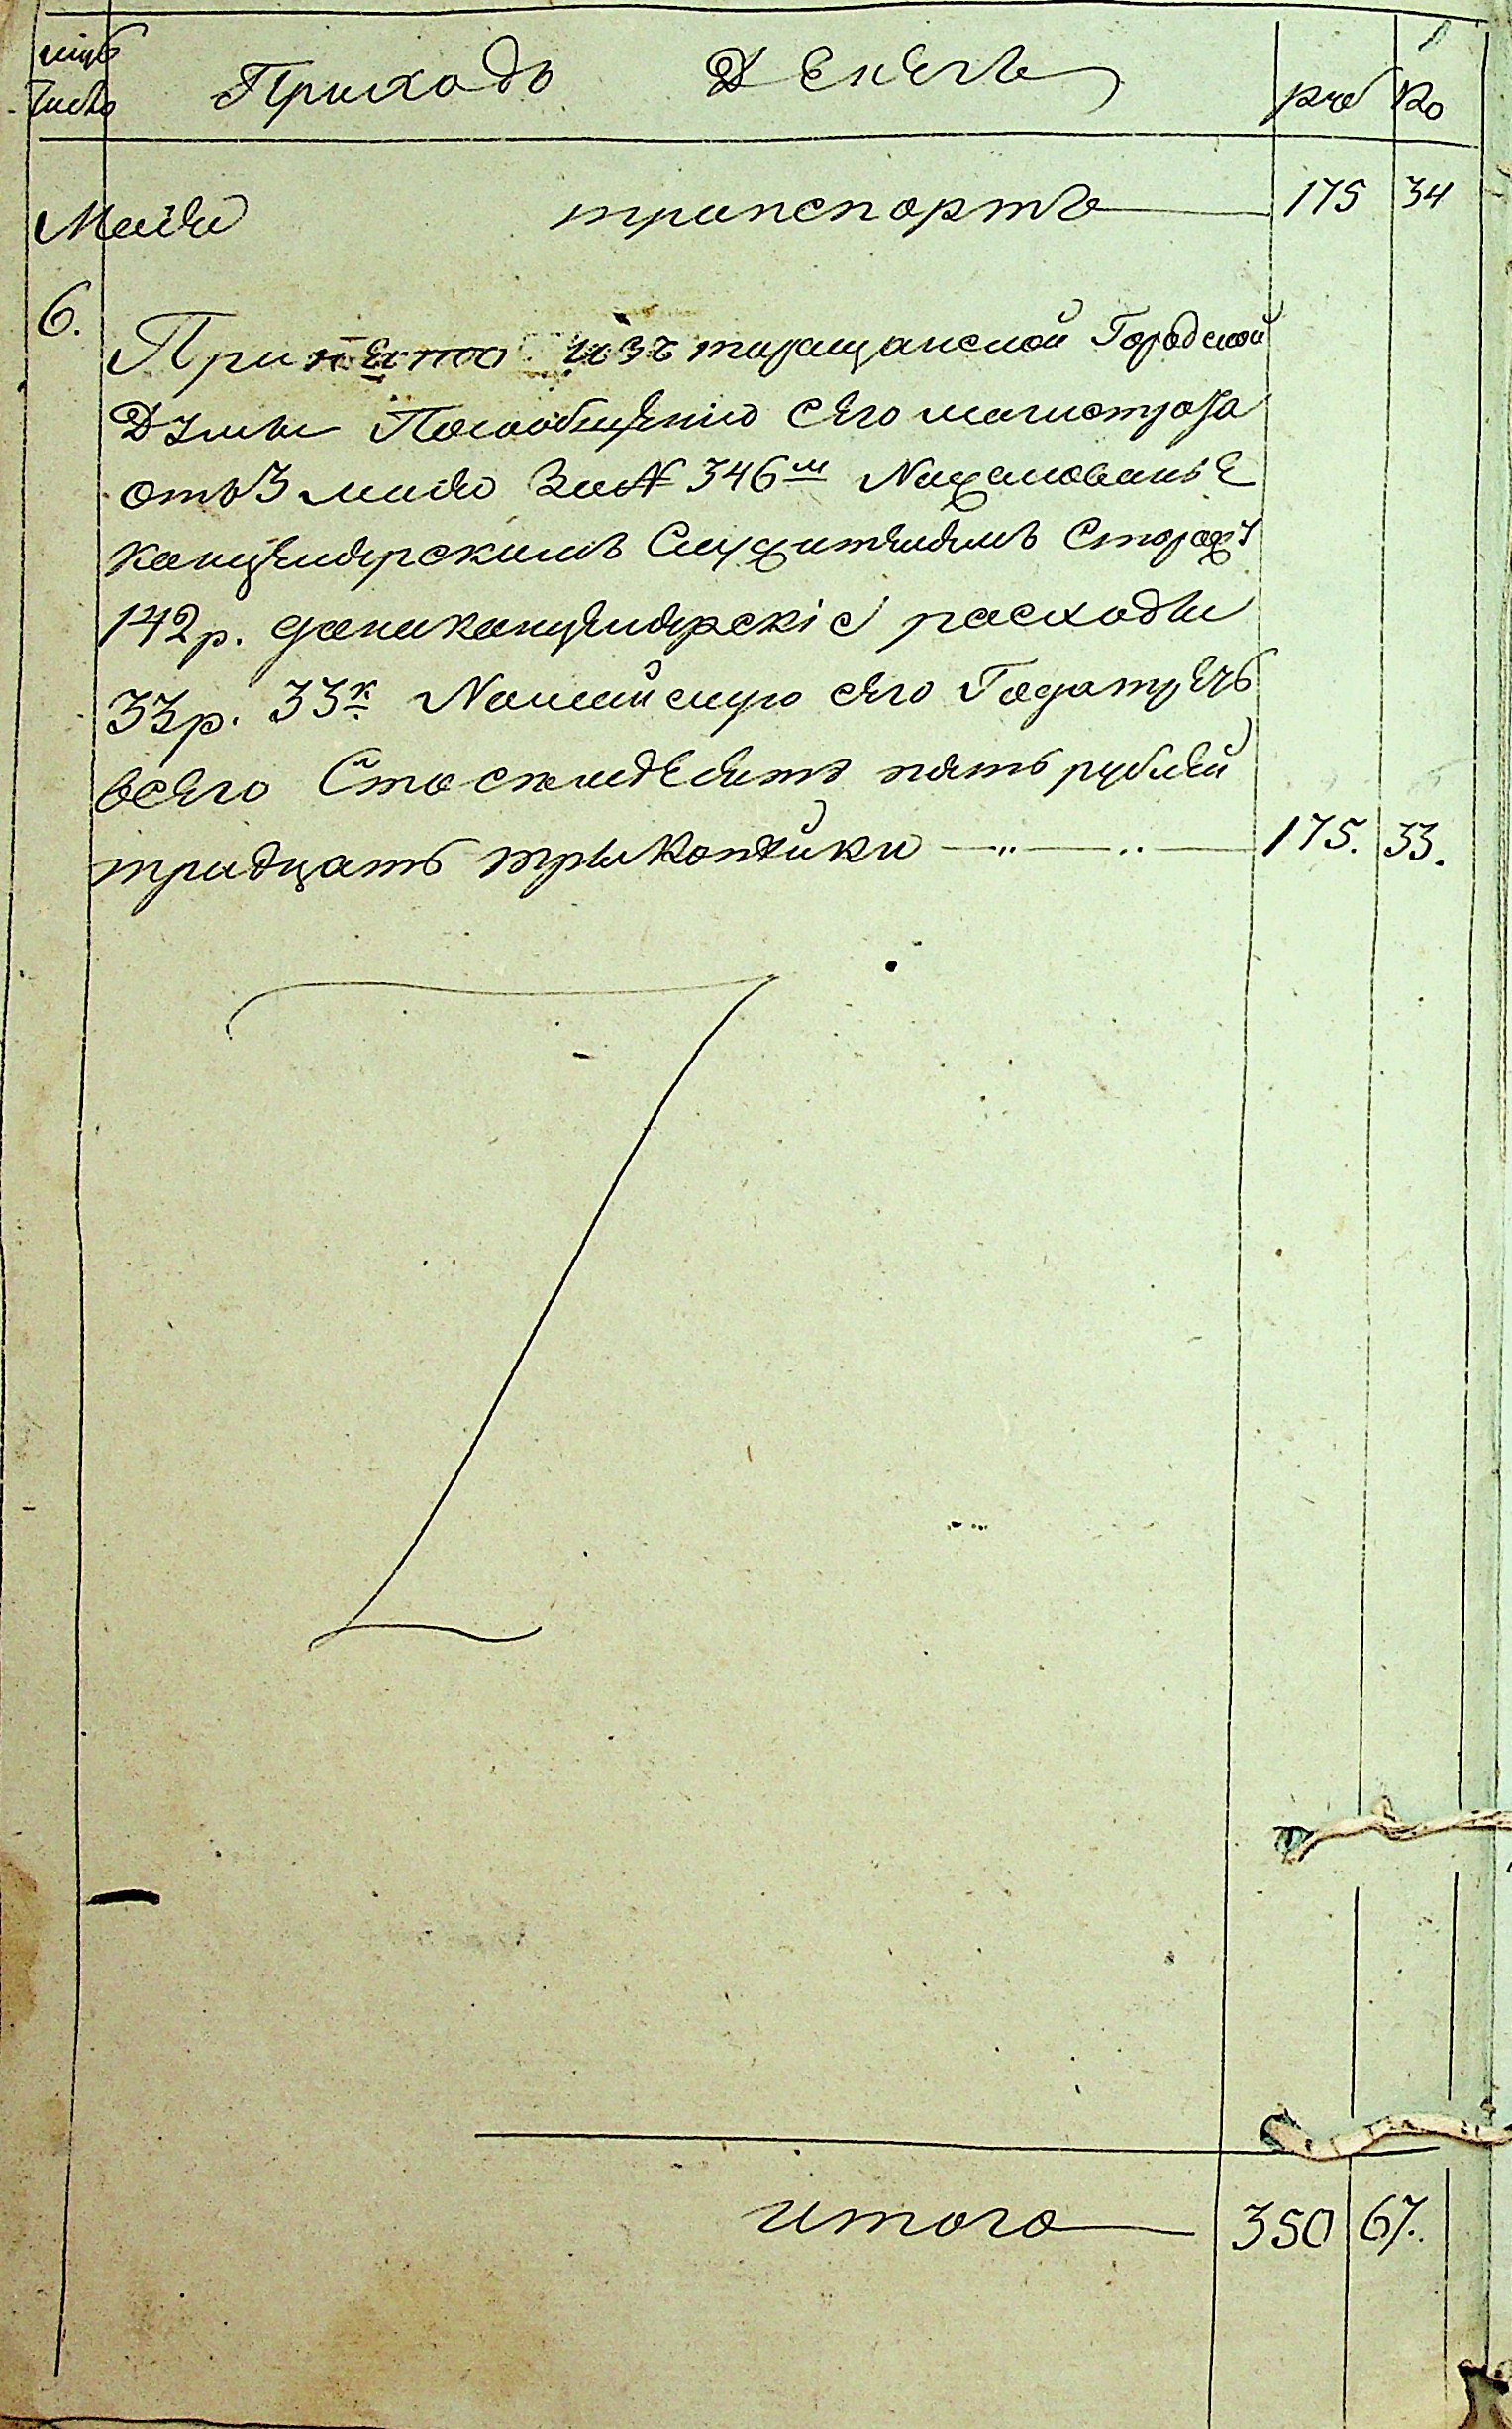 мцъ
число
Приходъ Денегъ
руб ко
Маія транспортъ 175 34
6.
Принято изъ таращанской Городской
Думы Посообщенію сего магистрата
отъ 3 маія За № 346м Нажалованье
канцелярскимъ Служителямъ Сторожу
142 р. данаканцелярскіе расходы
33 р. 33 к Намайскую сего Года треть
всего Сто семдесятъ пять рублей
тридцать трыкопѣйки 175. 33.
итого 350 67.